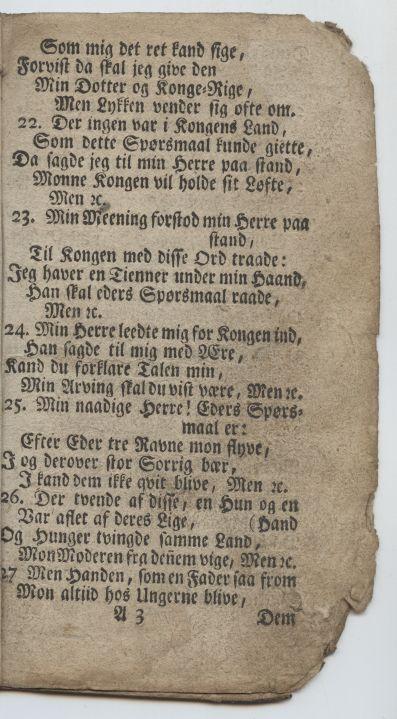 Som mig det ret kand sige,
Forvist da skal jeg give den
Min Dotter og Konge-Rige,
Men Lykken vender sig ofte om.
22. Der ingen var i Kongens Land,
Som dette Spørsmaal kunde giette,
Da sagde jeg til min Herre paa stand,
Monne Kongen vil holde sit Løfte,
Men ꝛc.
23. Min Meening forstod min Herre paa
stand,
Til Kongen med disse Ord traade:
Jeg haver en Tienner under min Haand,
Han skal eders Spørsmaal raade,
Men ꝛc.
24. Min Herre leedte mig for Kongen ind,
Han sagde til mig med Ære,
Kand du forklare Talen min,
Min Arving skal du vist være, Men ꝛc.
25. Min naadige Herre! Eders Spørs-
maal er:
Efter Eder tre Ravne mon flyve,
J og derover stor Sorrig bær,
J kand dem ikke qvit blive, Men ꝛc.
26. Der tvende af disse, en Hun og en
Var aflet af deres Lige, (Hand
Og Hunger tvingde samme Land,
Mon Moderen fra deñem vige, Men ꝛc.
27 Men Handen, som en Fader saa from
Mon altiid hos Ungerne blive,
A 3 Dem